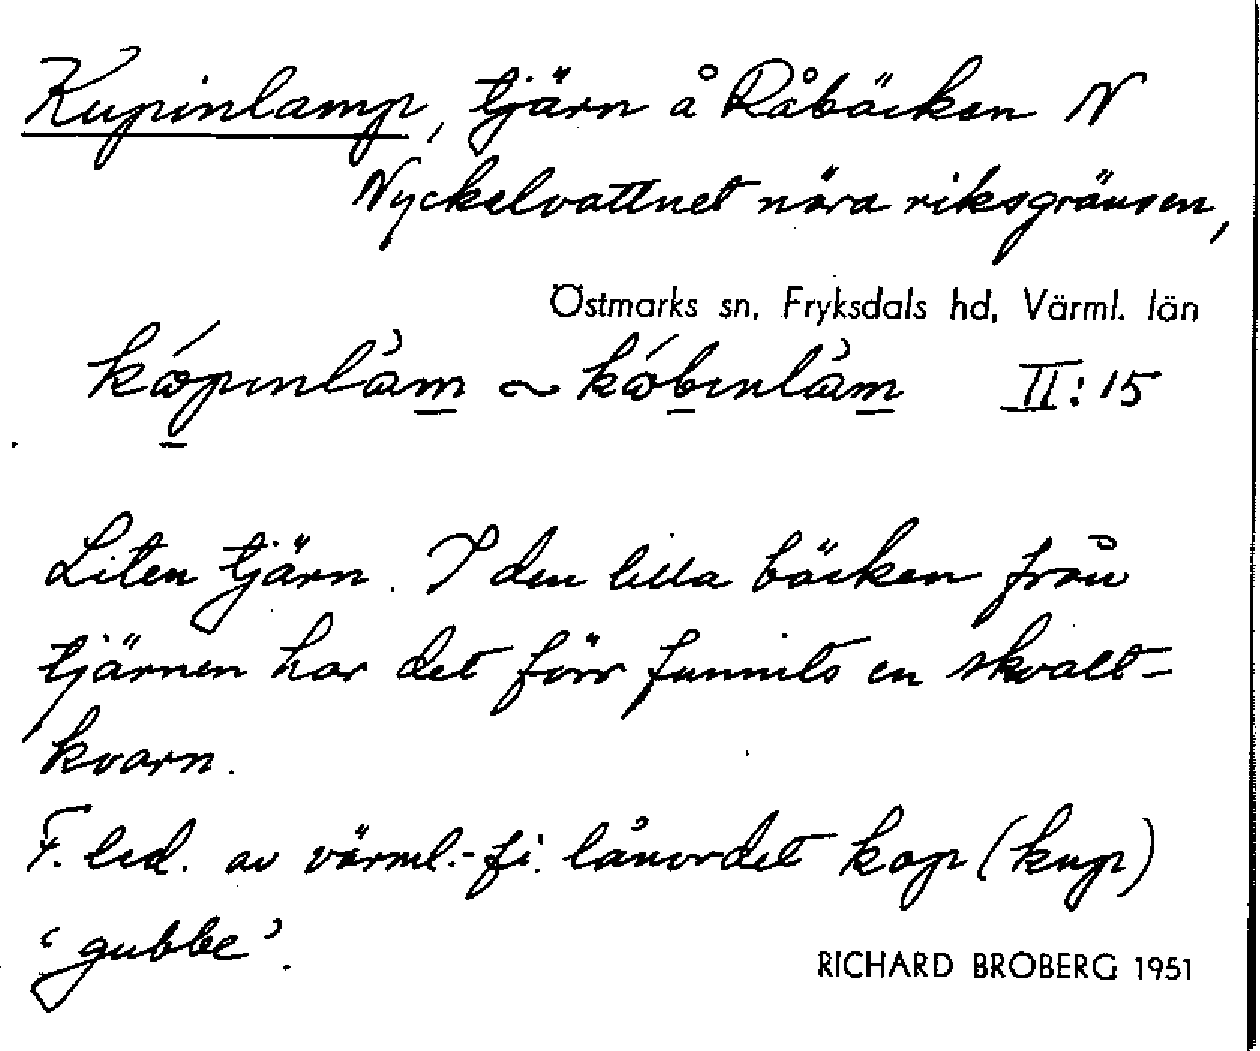 Kupinlamp, tjärn å Råbäcken N
Nyckelvattnet nära riksgränsen,
Östmarks sn, Fryksdals hd, Värml. län
kópınlàm ~ kóbınlàm II:15
Liten tjärn. I den lilla bäcken från
tjärnen har det förr funnits en skvalt-
kvarn.
F. led. av värml.-fi. lånordet kop (kup)
'gubbe'.
RICHARD BROBERG 1951